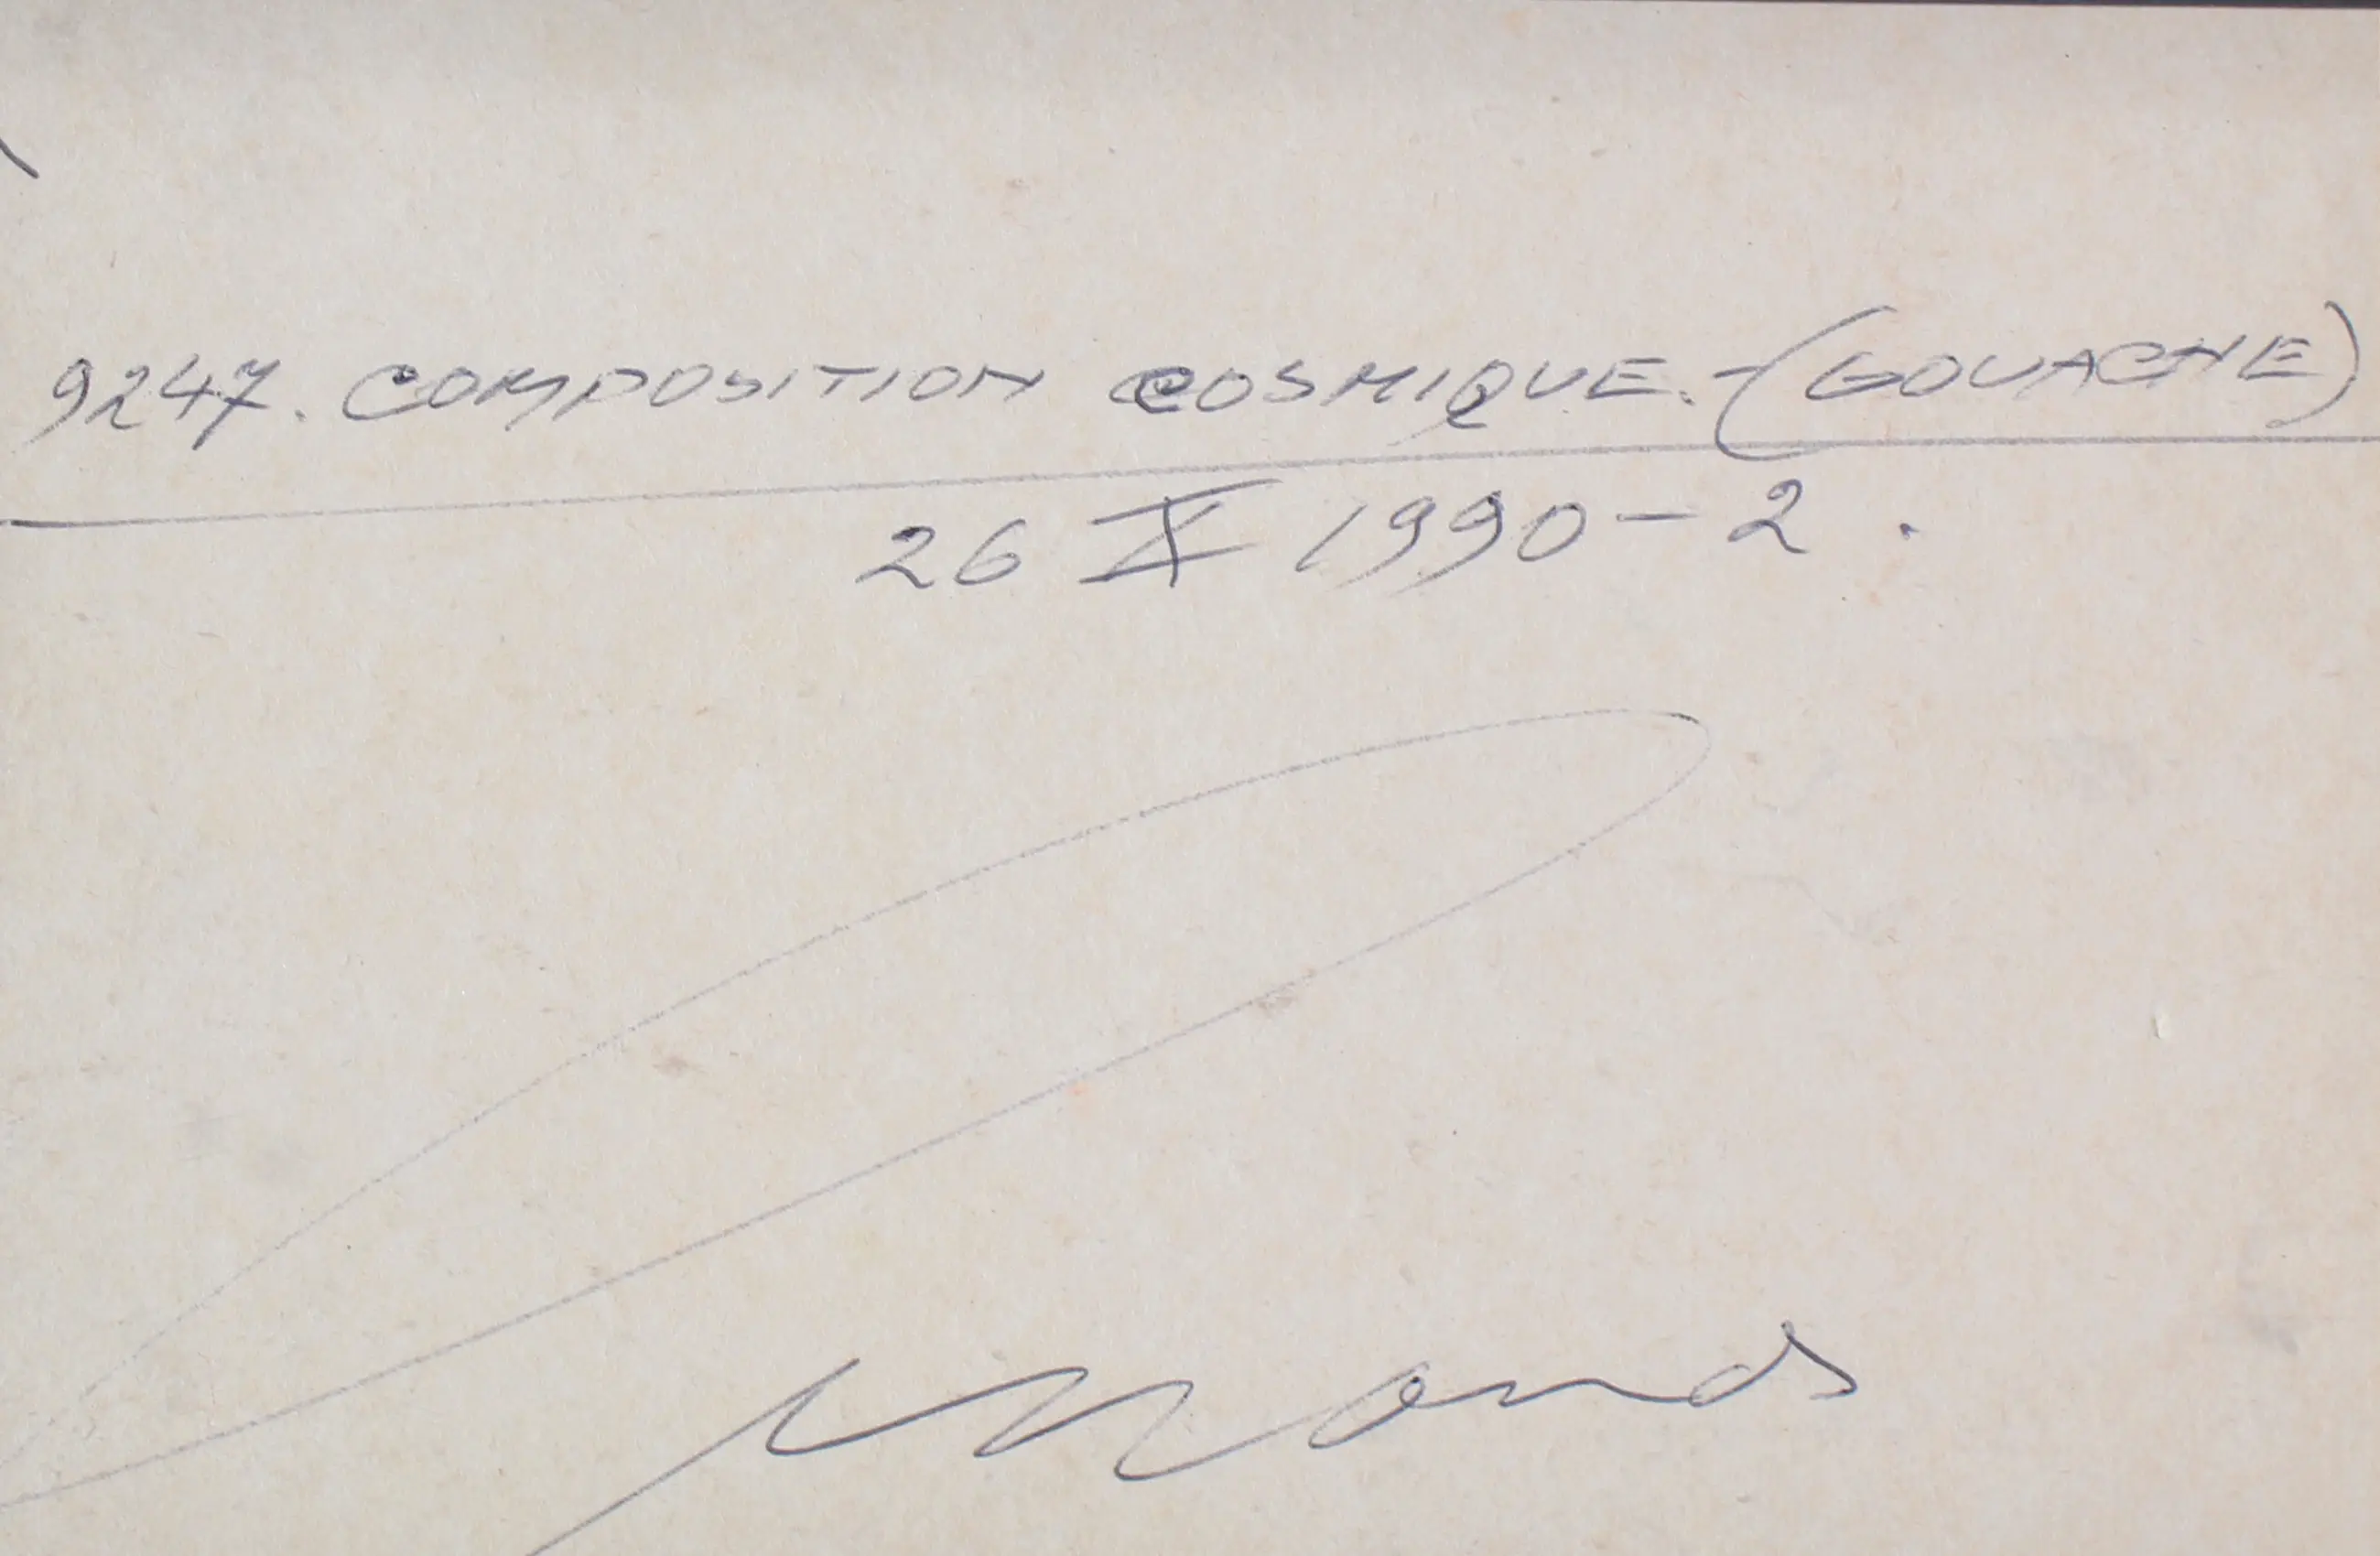 9247. COMPOSITION COSMIQUE.-(GOUACHE)
26 X 1990-2.